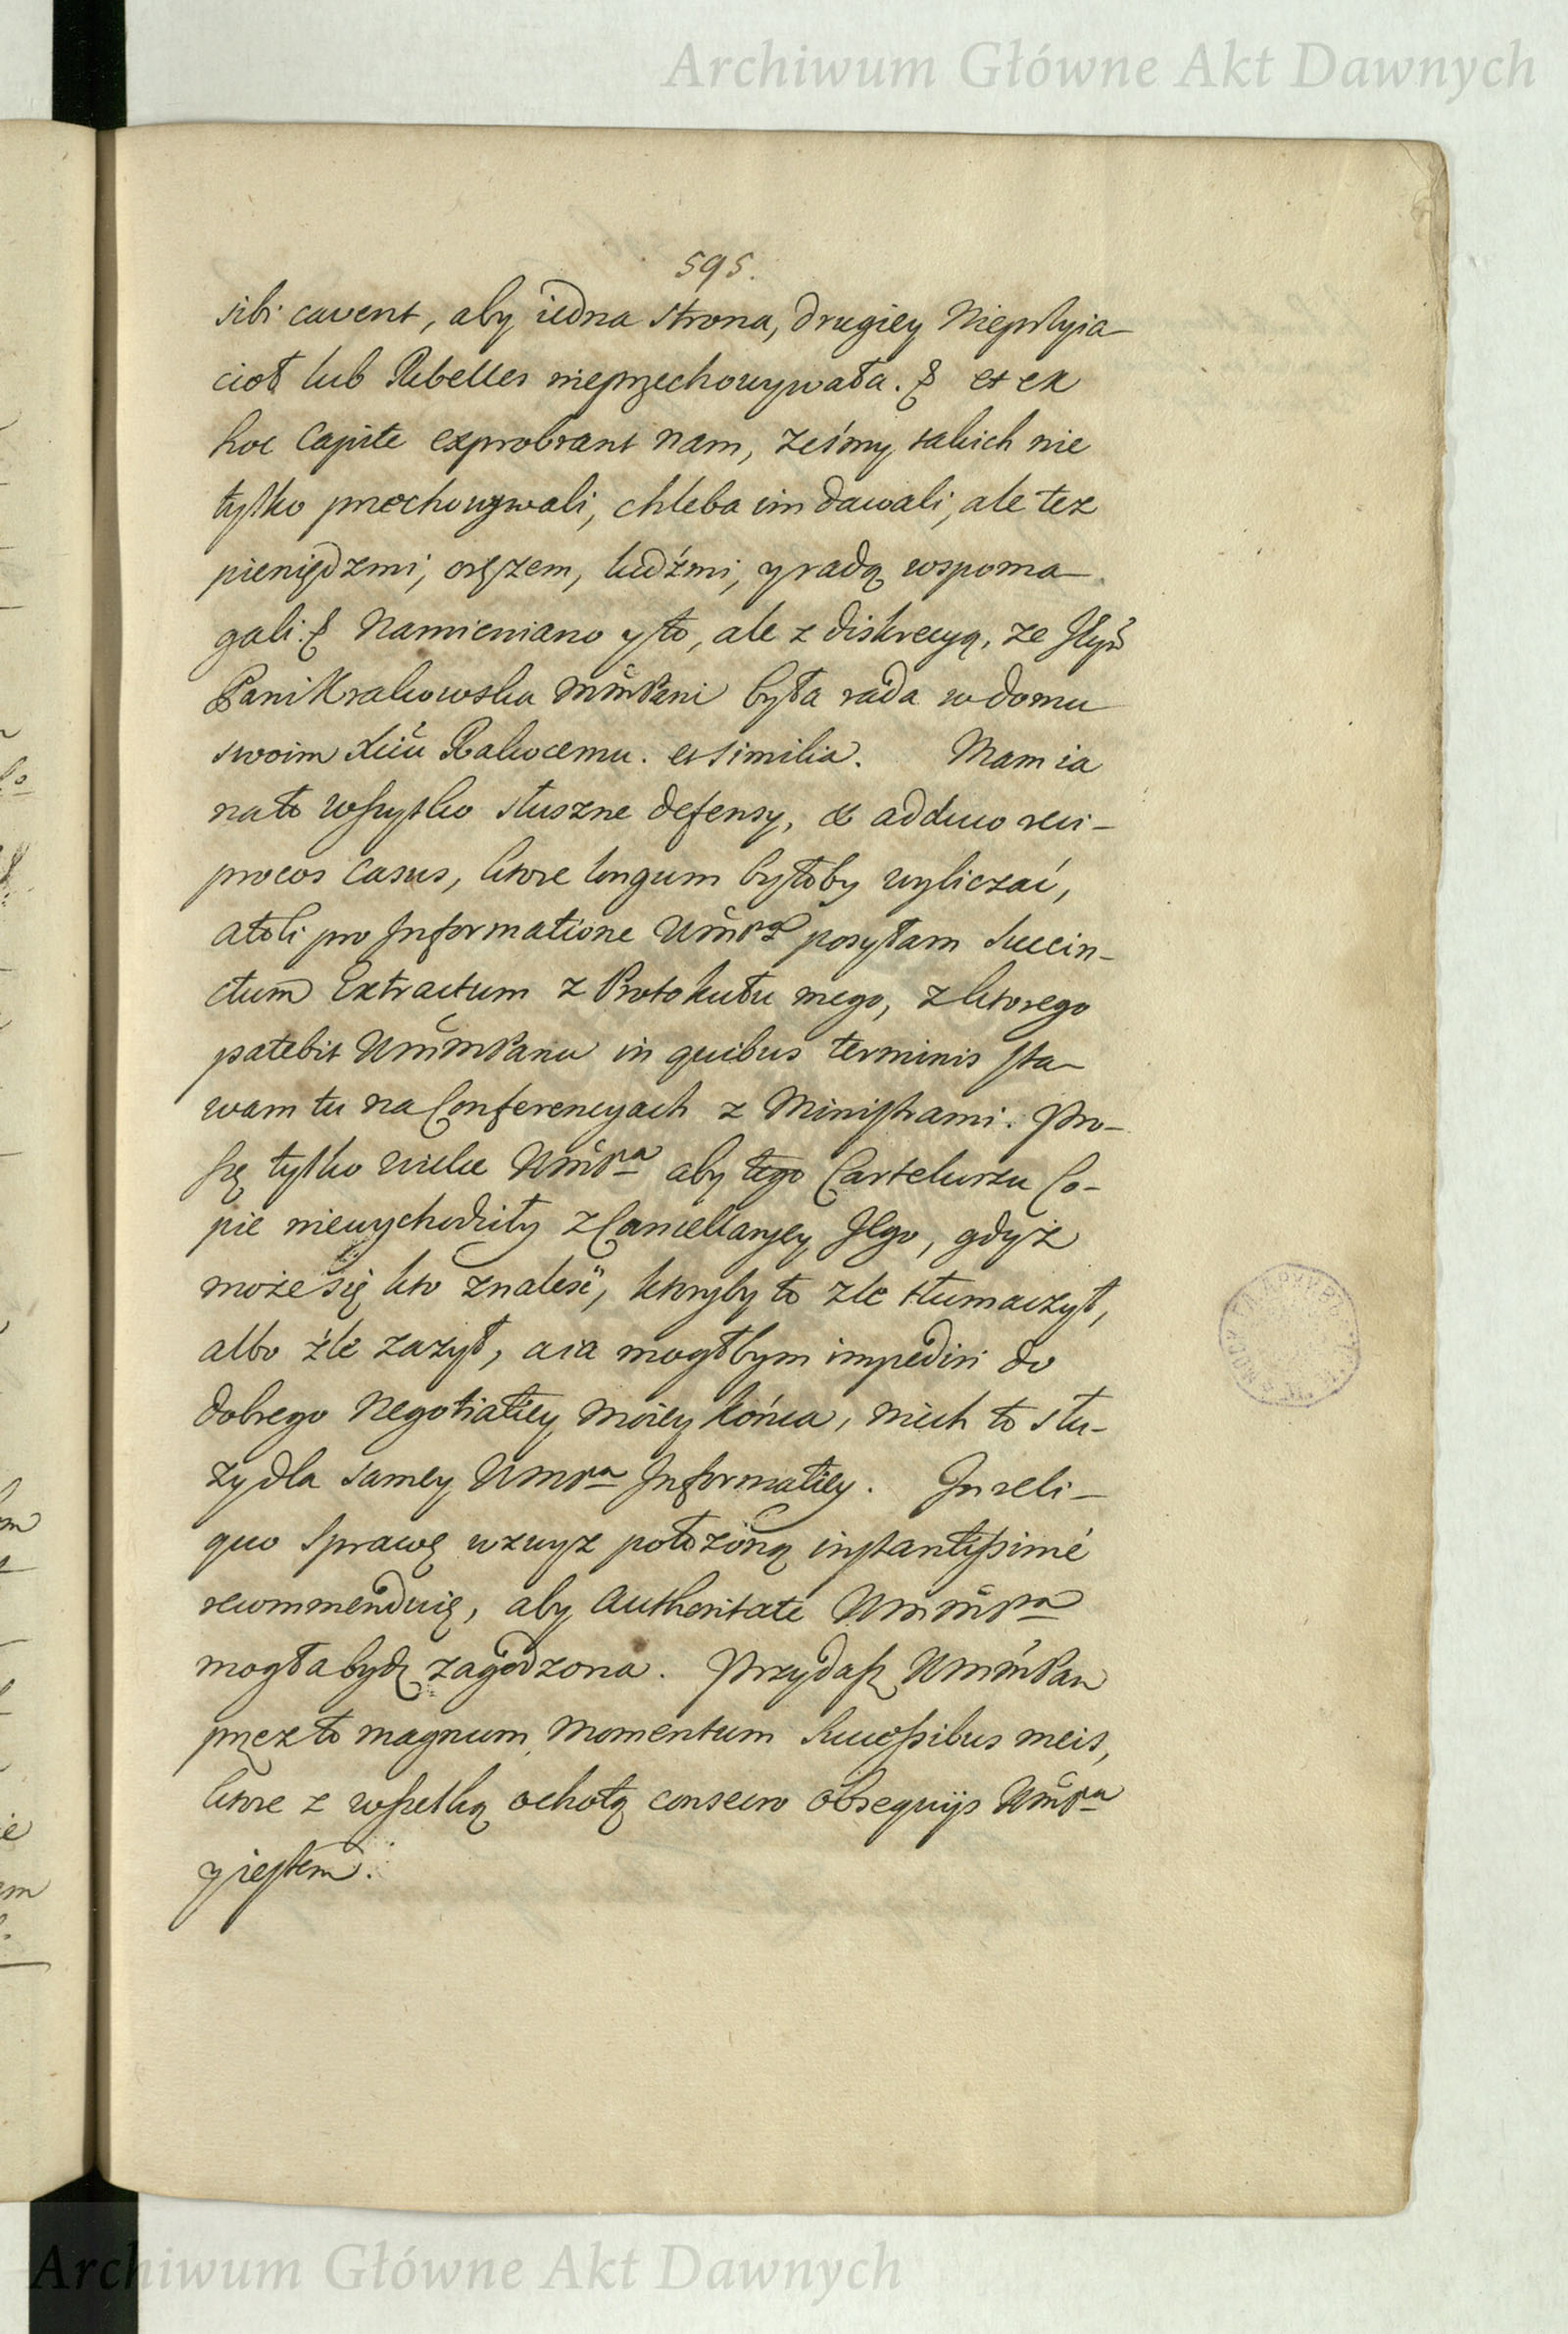 Archiwum Główne Akt Dawnych
595.
sibi cavent, aby iedna strona, drugiey Nieprzyia-
ciół lub Rebelles nieprzechowywała. et ex
hoc Capite exprobrant nam, żeśmy takich nie
tylko przechowywali, chleba im dawali, ale tez
pieniędzmi, orężem, ludźmi, y radą wspoma-
gali. Namieniano y to, ale z diskrecyą, ze
Pani Krakowska MmPani była rada w domu
swoim Xciu Rakocemu. et similia. Mam ia
na to wszytko słuszne defensy, & adduco reci-
procos Casus, ktore longum byłoby wyliczać,
atoli pro Informatione UmPa posyłam Succin-
ctum Extractum z Protokułu mego, z ktorego
patebit UmmPanu in quibus terminis sta-
wam tu na Conferencyach z Ministrami. Pro-
szę tylko wielce UmPa aby tego Cartelurzu Co-
pie niewychodziły z Cancellaryey Jego, gdyż
może się kto znalesć, ktoryby to zle tłumaczył,
albo źle zazył, a ia mogłbym impediri do
dobrego Negotiatiey moiey końca, niech to słu-
zy dla samey UmPa Informatiey. In reli-
quo Sprawę wzwyz położoną instantissimé
recommenduię, aby Authoritate UmmPa
mogła bydz zagodzona. Przydasz UmmPan
przez to magnum Momentum Successibus meis,
ktore z wszelką ochotą consecro obsequijs UmPa
y iestem.
Archiwum Główne Akt Dawnych